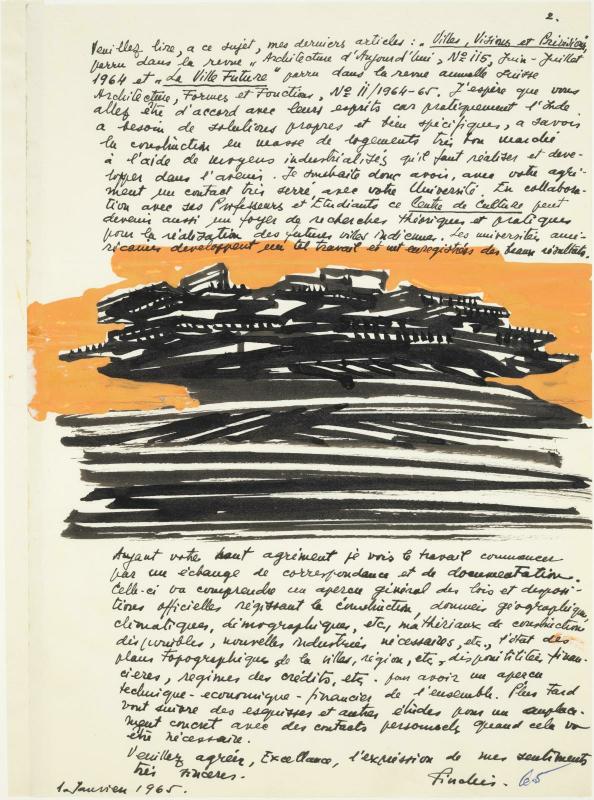 2.
Veuillez lire, a ce sujet, mes derniers articles : „Villes, Visions et Prévisions,
parru dans la revue „Architecture d'Aujourd'hui, No 115, Juin-Juillet
1964 et „La Ville Future" parru dans la revue annuelle suisse
Architecture, Formes et Fonction, No 11/1964-65. J'espère que vous
allez être d'accord avec leurs esprits car pratiquement l'Inde
a besoin de solutions propres et bien spécifiques, a savoir
la construction en masse de logements très bon marché
à l'aide de moyens industrialisés qu'il faut réaliser et deve-
lopper dans l'avenir. Je souhaite donc avoir, avec votre agré-
ment un contact très serré, avec votre Université. En collabora-
tion avec ses Professeurs et Etudiants ce Centre de Culture peut
devenir aussi un foyer de recherches théoriques et pratiques
pour la réalisation des futures villes indiennes. Les universités amé-
ricaines developpent un tel travail et ont enregistrés des beaux résultats.
Ayant votre haut agrément je vois le travail commencer
par un échange de correspondance et de documentation.
Celle-ci va comprendre un aperçu général des lois et disposi-
tions officielles régissant la construction, données géographiques,
climatiques, démographiques, etc, mathériaux de construction
disponibles, nouvelles industries nécessaires, etc, l'état des
plans topographiques de la villes, région, etc, disponibilités finan-
cières, regimes des crédits, etc. pour avoir un aperçu
technique-economique-financier de l'ensemble. Plus tard
vont suivre des esquisses et autres études pour un emplace-
ment concret avec des contacts personnels quand cela va
être nécessaire.
Veuillez agréer, Excellence, l'expression de mes sentiments
très sincères.
1. Janvier 1965. 65